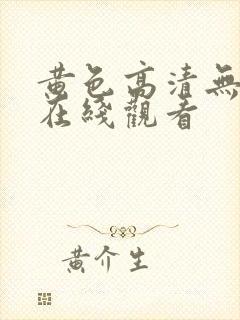 黄色高清無
在綫觀看
黄介生